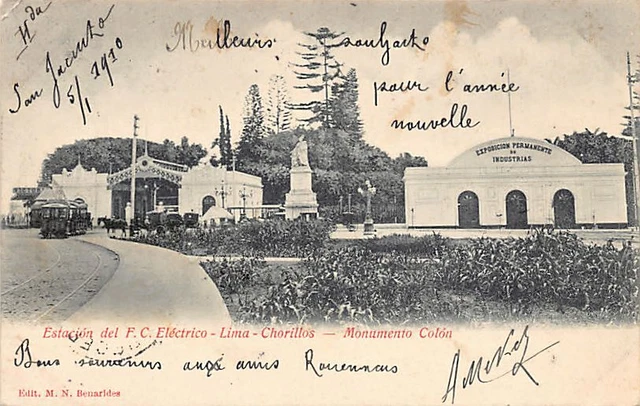 Hda
San Jacinto
5/1 1910
Meilleurs souhaits
pour l'année
nouvelle
EXPOSICION PERMANENTE
DE
INDUSTRIAS
Estación del F. C. Eléctrico - Lima - Chorillos — Monumento Colón
Bons souvenirs aux amis Rouennais
Edit. M. N. Benarides